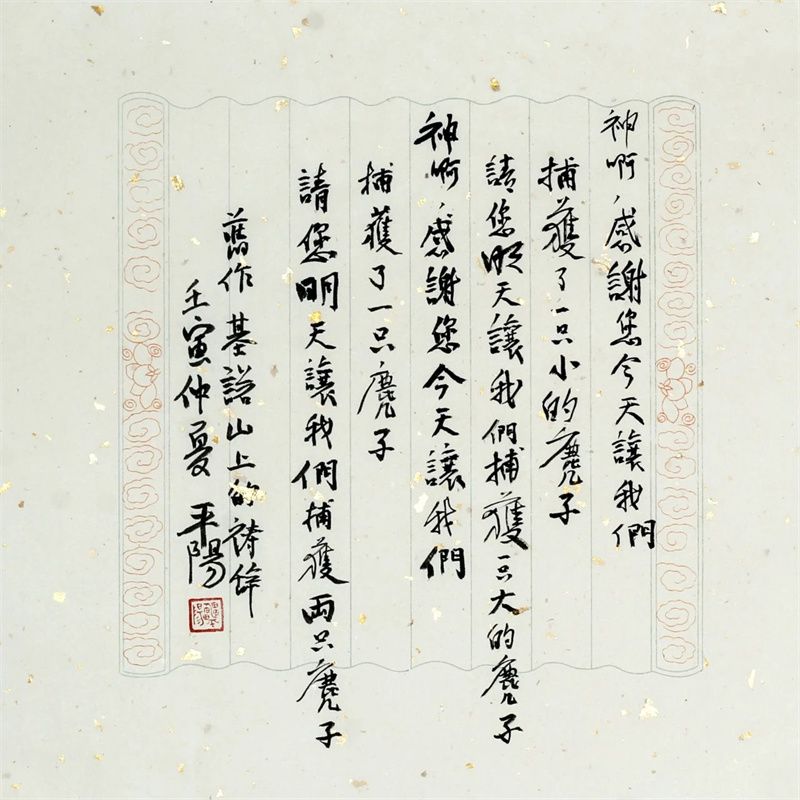 神啊,感謝您今天讓我們
捕獲了一只小的麂子
請您明天讓我們捕獲一只大的麂子
神啊,感謝您今天讓我們
捕獲了一只麂子
請您明天讓我們捕獲兩只麂子
舊作 基諾山上的禱辭
壬寅仲夏 平陽